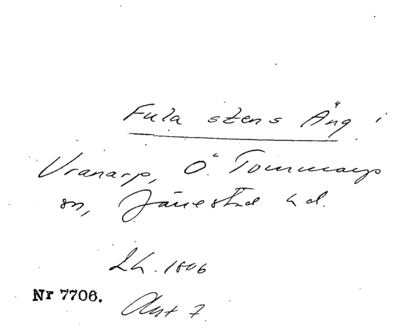 Fula stens Äng i
Vranarp, Ö. Tommarps
sn, Järrestad hd.
LH. 1806
Akt 7
Nr 7706.